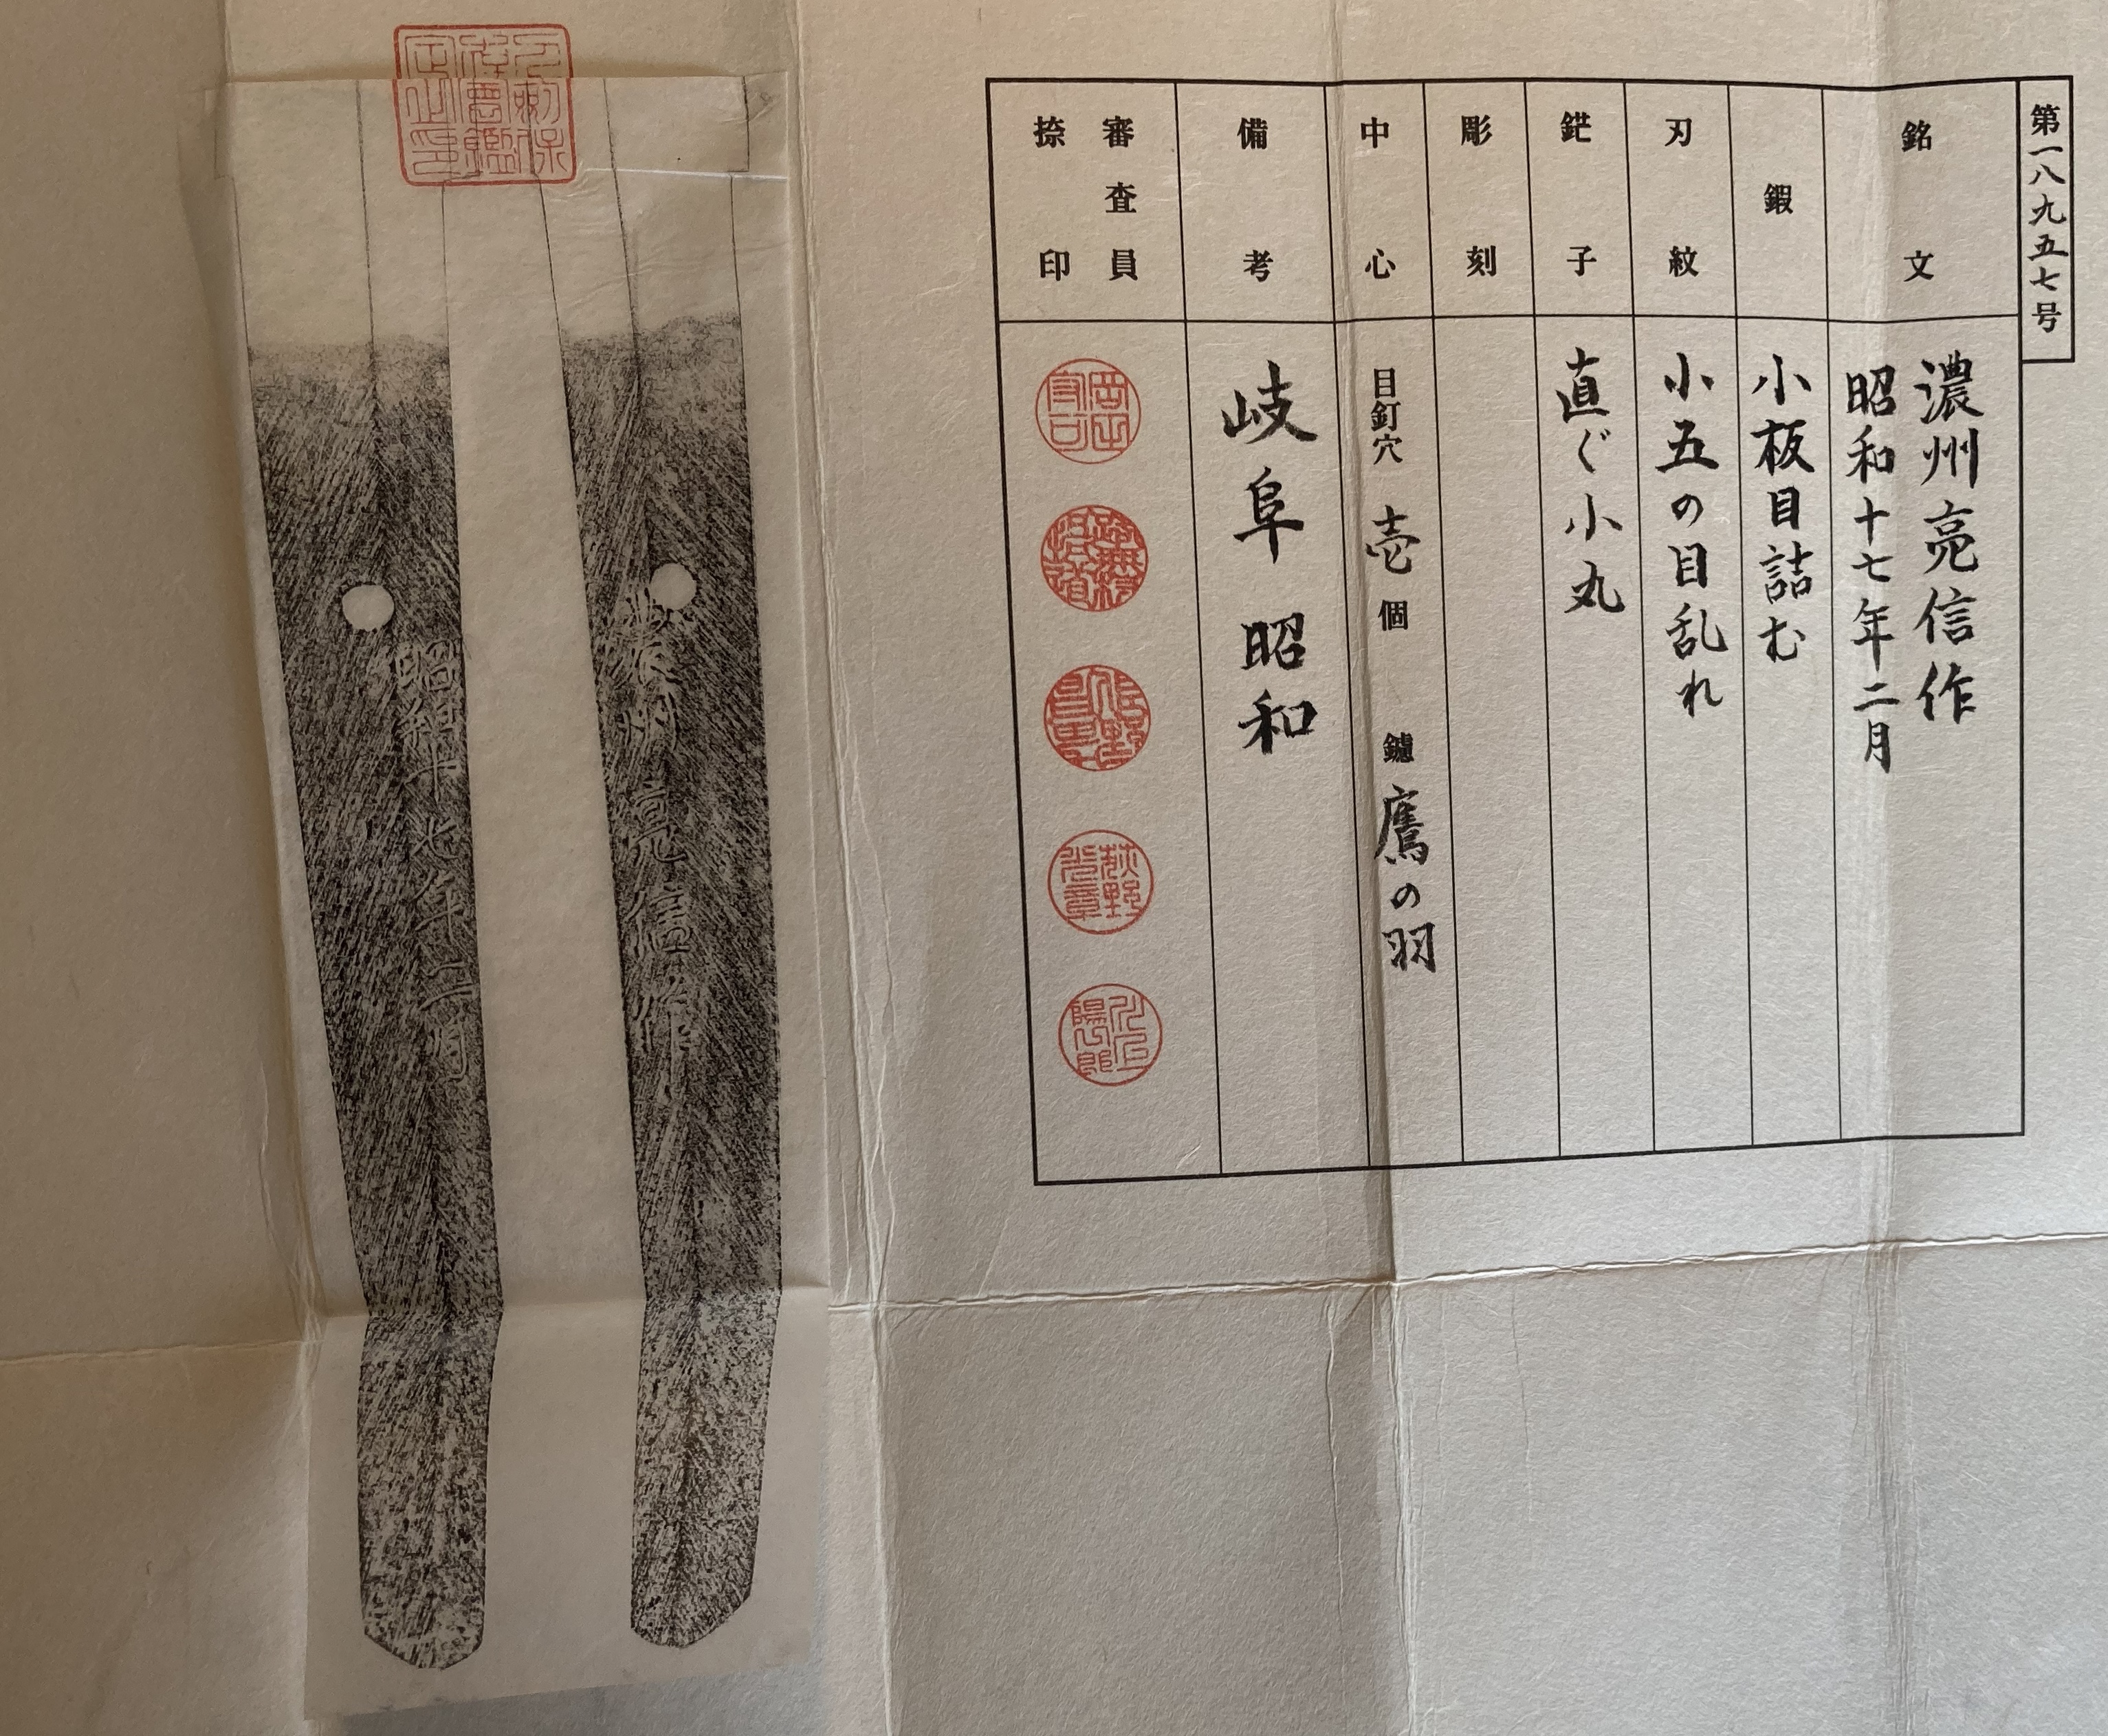 第一八九五七号
銘文
濃州亮信作
昭和十七年二月
鍜
小板目詰む
刃紋
小五の目乱れ
鋩子
直ぐ小丸
彫刻
中心
目釘穴 壱個 鑢 鷹の羽
備考
岐阜 昭和
審査員
捺印
濃州亮信作
昭和十七年二月